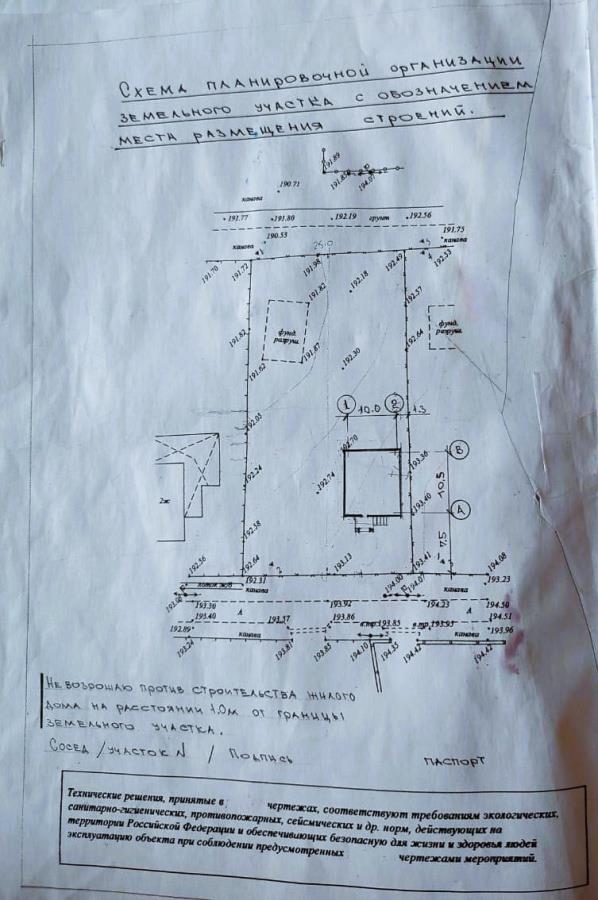 Схема планировочной организации
земельного участка с обозначением
места размещения строений.
191.89
191.85 194.07
канава 190.71
191.77 191.80 192.19 грунт 192.56
канава 190.53 191.75 канава
25.0
191.70 191.72 191.98 192.49 192.53
191.82 192.18 192.57
фунд. разруш. фунд. разруш.
191.82 191.87 192.64
191.62 192.30
1 10.0 2 1.3
192.03
192.70 В
2ж 192.24 192.74 193.36 10.5
193.40 А
192.38 7.5
192.56 192.64 193.13 192.41 194.08
192.31 194.00 194.07 193.23
лоток ж/б канава канава
193.30 А 193.92 194.23 А 194.50
193.40 193.57 193.86 193.85 193.95 194.51
192.89 канава канава 193.96
192.24 193.81 193.85 194.10 194.35 194.42 194.42
Не возрошаю против строительства жилого
дома на расстоянии 1.0м от границы
земельного участка.
Сосед /участок N / Подпись паспорт
Технические решения, принятые в чертежах, соответствуют требованиям экологических,
санитарно-гигиенических, противопожарных, сейсмических и др. норм, действующих на
территории Российской Федерации и обеспечивающих безопасную для жизни и здоровья людей
эксплуатацию объекта при соблюдении предусмотренных чертежами мероприятий.